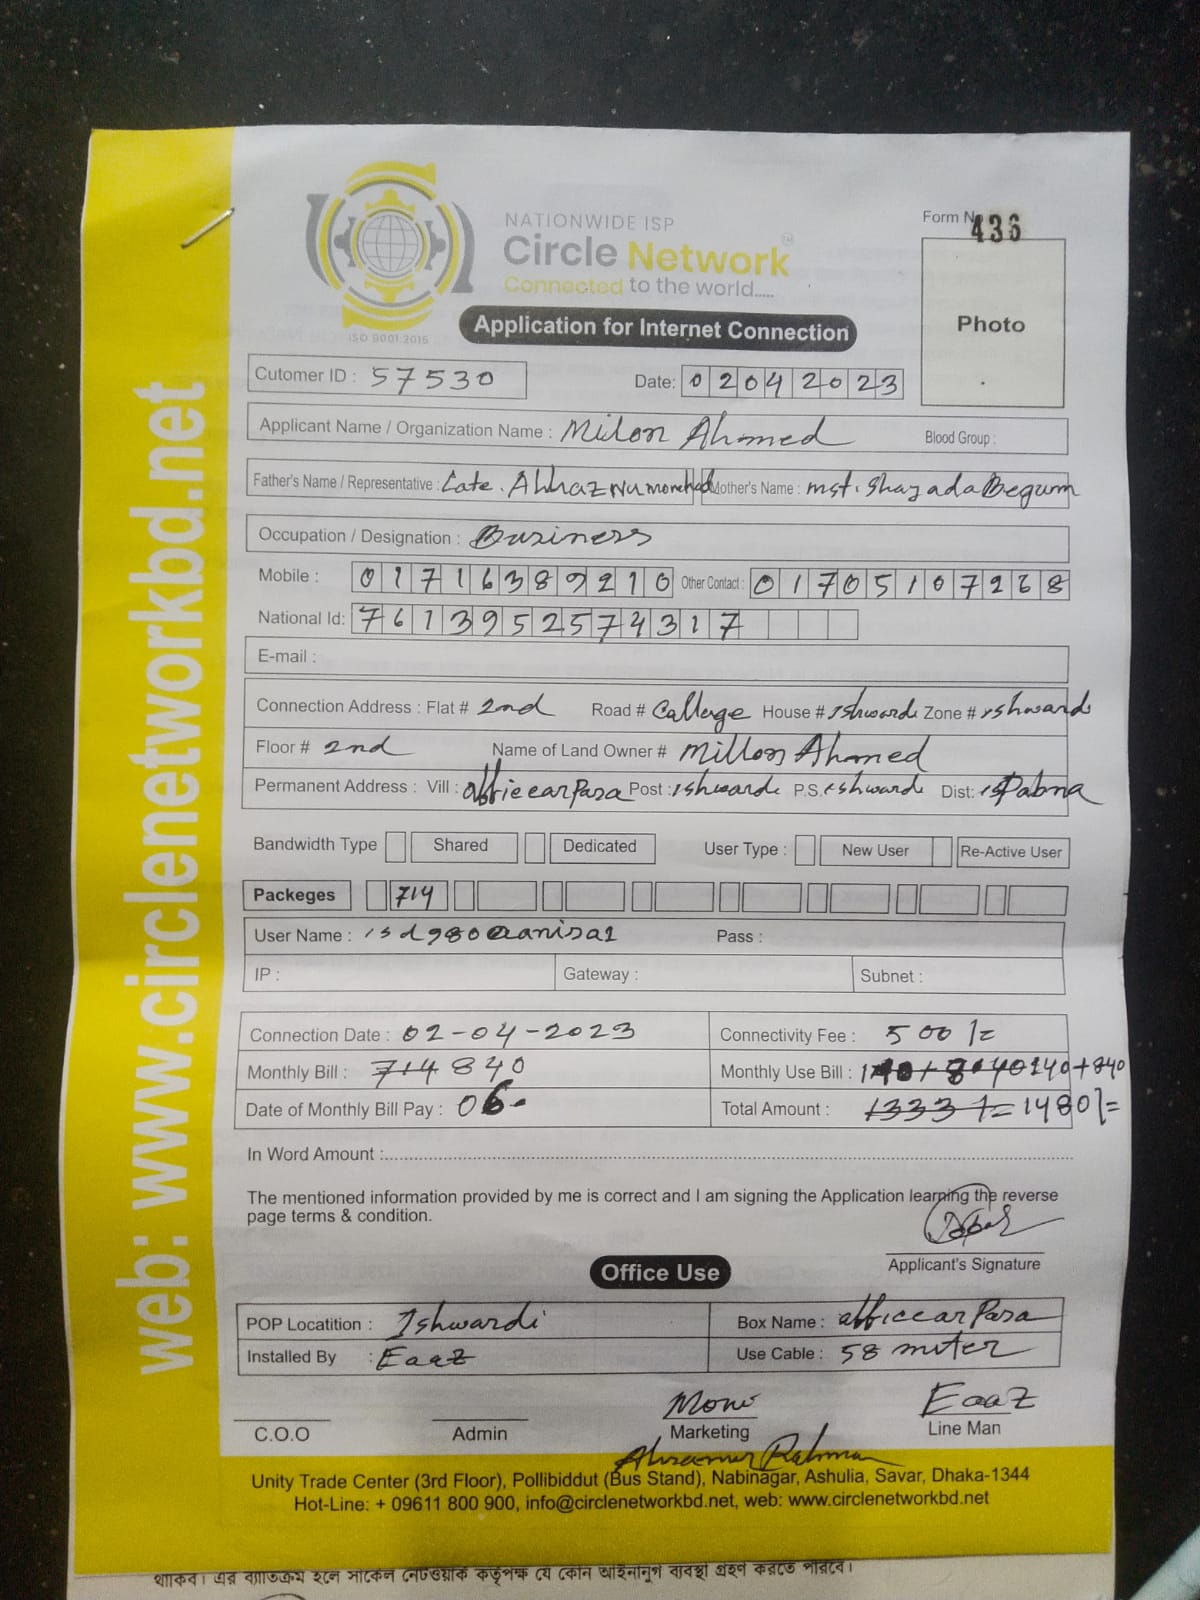 web: www.circlenetworkbd.net
NATIONWIDE ISP
Circle Network
TM
Connected to the world.....
ISO 9001:2015
Form No
436
Photo
Application for Internet Connection
Cutomer ID : 57530
Date: 02042023
Applicant Name / Organization Name : Milon Ahmed
Blood Group :
Father's Name / Representative : Late.
Mother's Name : mst. Shazada Begum
Occupation / Designation : Business
Mobile : 01716389210 Other Contact : 01705107268
National Id: 7613952574317
E-mail :
Connection Address : Flat # 2nd Road # Callege House # Ishwardi Zone # Ishwardi
Floor # 2nd Name of Land Owner # Millon Ahmed
Permanent Address : Vill : Post : Ishwardi P.S. Ishwardi Dist: Pabna
Bandwidth Type Shared Dedicated User Type : New User Re-Active User
Packeges 714
User Name : Pass :
IP : Gateway : Subnet :
Connection Date : 02-04-2023 Connectivity Fee : 500/=
Monthly Bill : 714 840 Monthly Use Bill : 140+840
Date of Monthly Bill Pay : 06 Total Amount : 1333/= 1480/=
In Word Amount :
The mentioned information provided by me is correct and I am signing the Application learning the reverse
page terms & condition.
Applicant's Signature
Office Use
POP Locatition : Ishwardi Box Name :
Installed By : Eaaz Use Cable : 58 miter
Eaaz
C.O.O Admin Marketing Line Man
Rahman
Unity Trade Center (3rd Floor), Pollibiddut (Bus Stand), Nabinagar, Ashulia, Savar, Dhaka-1344
Hot-Line: + 09611 800 900, info@circlenetworkbd.net, web: www.circlenetworkbd.net
থাকিব। এর ব্যাতিক্রম হলে সার্কেল নেটওয়ার্ক কর্তৃপক্ষ যে কোন আইনানুগ ব্যবস্থা গ্রহণ করতে পারবে।